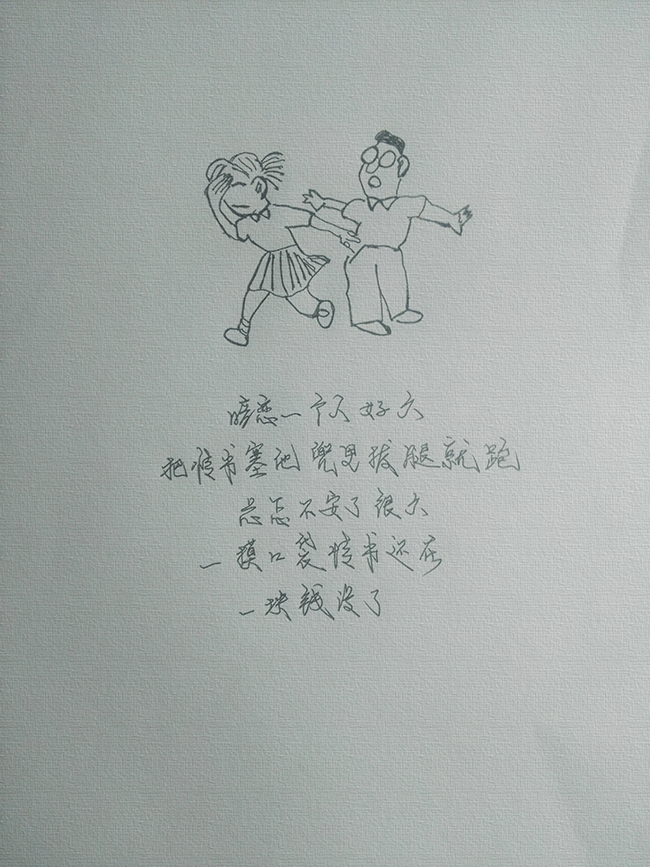 暗恋一个人好久
把情书塞他兜里拔腿就跑
忐忑不安了很久
一摸口袋情书还在
一块钱没了